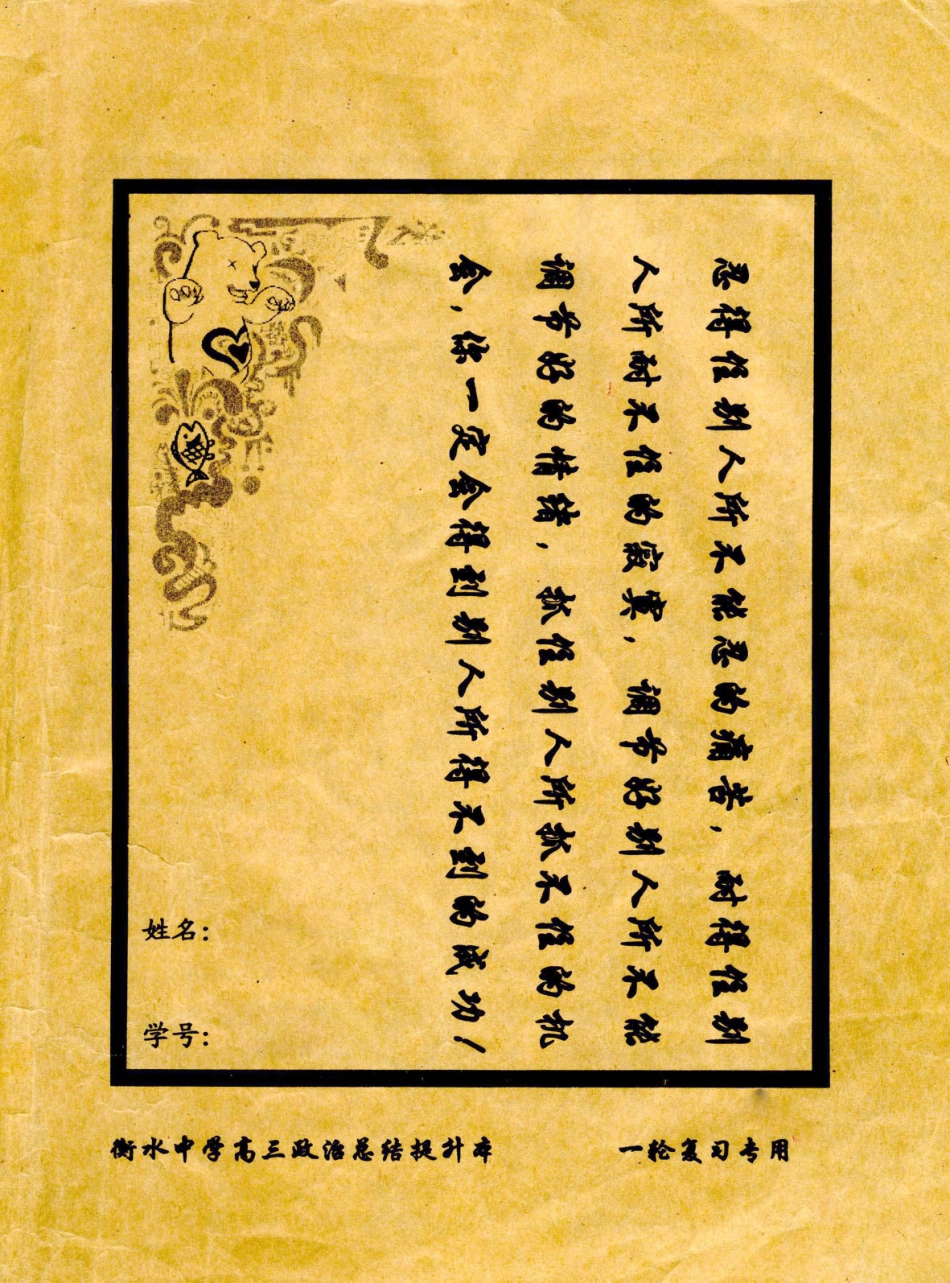 忍得住别人所不能忍的痛苦，耐得住别
人所耐不住的寂寞，调节好别人所不能
调节好的情绪，抓住别人所抓不住的机
会，你一定会得到别人所得不到的成功！
姓名：
学号：
衡水中学高三政治总结提升本 一轮复习专用